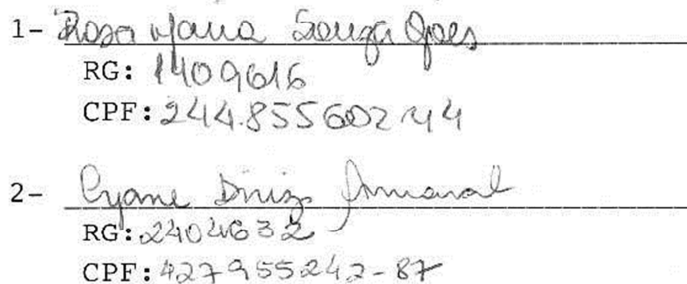 1- Rosa Maria Souza Goes
RG: 1409616
CPF: 244.855602 44
2- Cyane Diniz Amaral
RG: 2404632
CPF: 427955242-87